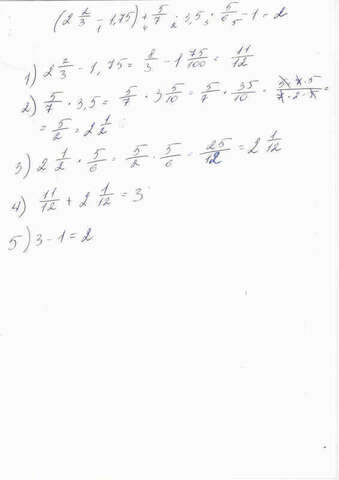 (2 2/3 - 1,75) + 5/7 · 3,5 · 5/6 - 1 = 2
1 4 2 3 5
1) 2 2/3 - 1,75 = 8/3 - 1 75/100 = 11/12
2) 5/7 · 3,5 = 5/7 · 3 5/10 = 5/7 · 35/10 =
= 5/2 = 2 1/2
3) 2 1/2 · 5/6 = 5/2 · 5/6 = 25/12 = 2 1/12
4) 11/12 + 2 1/12 = 3
5) 3 - 1 = 2